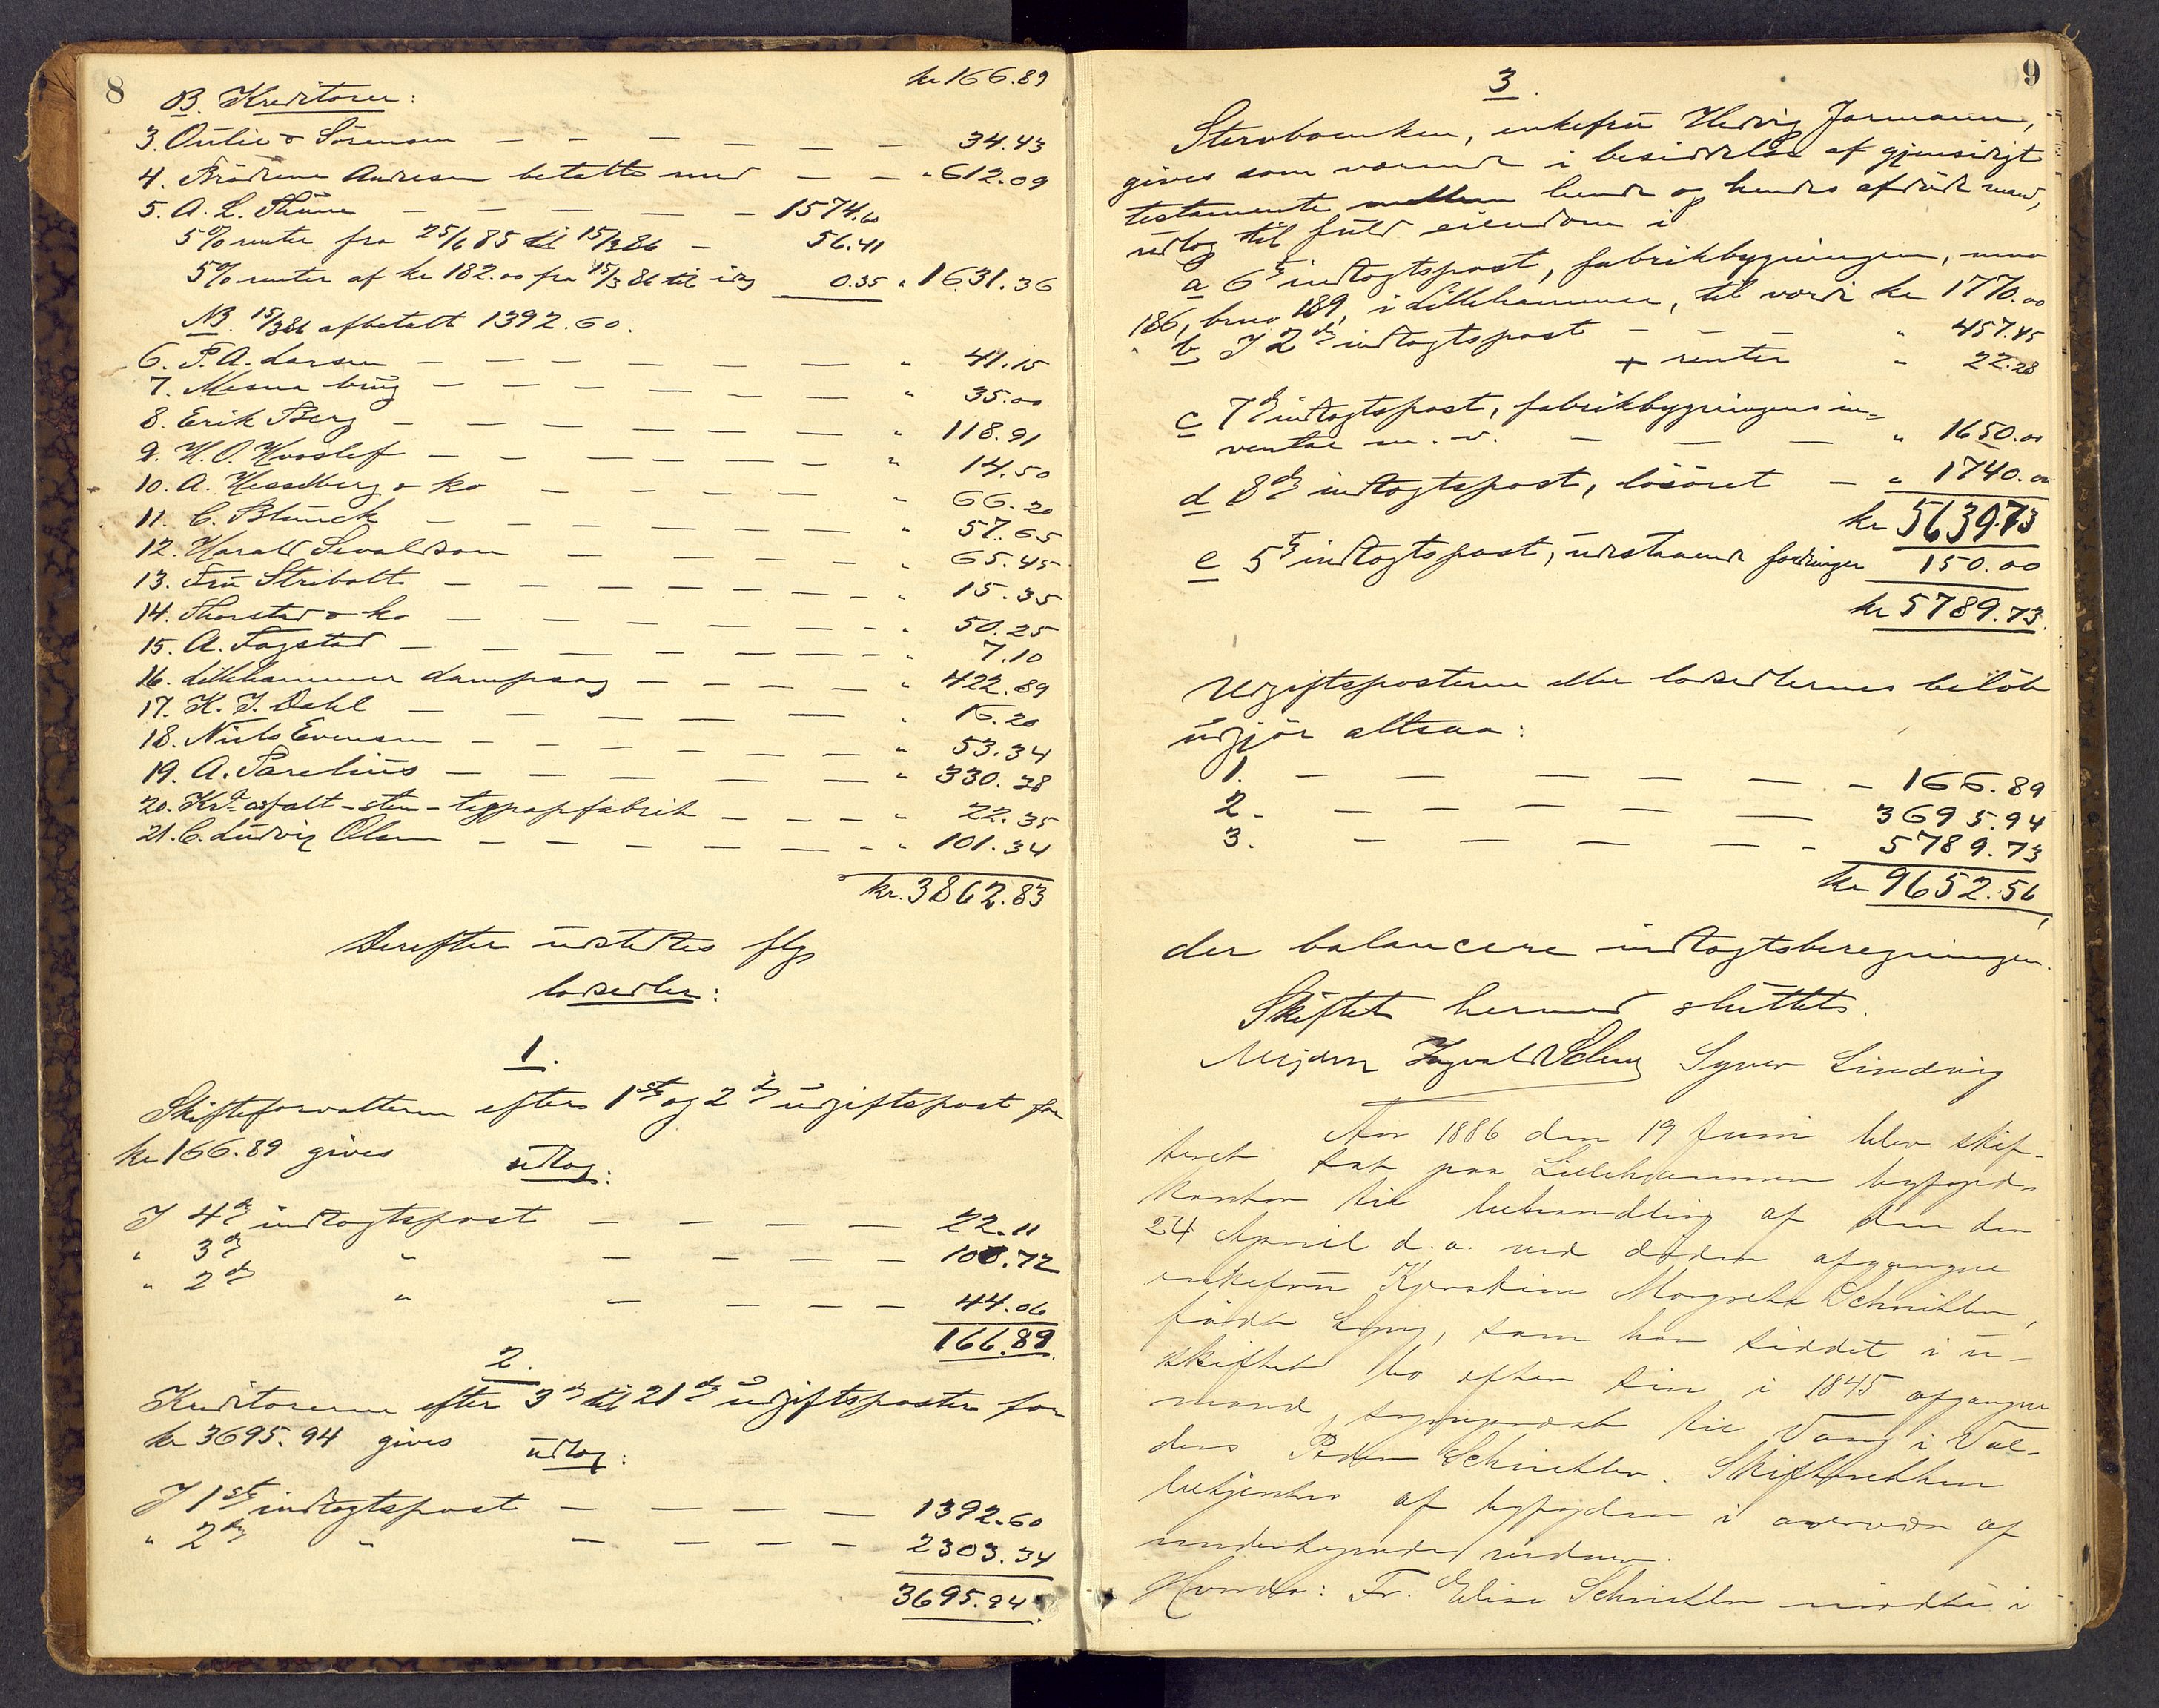 8
kr 166.89
B. Kreditorer:
3. Oulie & Sörensen — — — — — — 34.43
4. Brödrene Andresen betalte med — — " 612.09
5. A. L. Thune — — — — — 1574.60
5% renter fra 25/6 85 til 15/3 86 — 56.41
5% renter af kr 182.00 fra 15/3 86 til idag 0.35 " 1631.36
NB. 15/3 86 afbetalt 1392.60.
6. P. A. Larsen — — — — — — " 41.15
7. Mesna brug — — — — — — " 35.00
8. Erik Berg — — — — — — " 118.91
9. H. O. Hvoslef — — — — — — " 14.50
10. A. Hesselberg & ko — — — — — " 66.20
11. C. Blunck — — — — — — " 57.65
12. Harald Sevaldson — — — — — " 65.45
13. Fru Stribolt — — — — — — " 15.35
14. Thorstad & ko — — — — — — " 50.25
15. A. Fagstad — — — — — — " 7.10
16. Lillehammer dampsag — — — — " 422.89
17. K. J. Dahl — — — — — — " 16.20
18. Niels Evensen — — — — — — " 53.34
19. A. Parelius — — — — — — " 330.28
20. Kra asfalt-sten-tagpapfabrik — — — " 22.35
21. C. Ludvig Olsen — — — — — — " 101.34
kr. 3862.83
Derefter udstedtes flg
lodsedler:
1.
Skifteforvalteren efter 1ste og 2den udgiftspost for
kr 166.89 gives
udlæg:
I 4de indtægtspost — — — — 22.11
" 3die " — — — — 100.72
" 2den " — — — — 44.06
166.89
2.
Kreditorerne efter 3die til 21de udgiftsposter for
kr 3695.94 gives udlæg:
I 1ste indtægtspost — — — — 1392.60
" 2den " — — — — 2303.34
3695.94
9
3.
Stervboenken, enkefru Hedvig Jormann,
gives som værende i besiddelse af gjensidigt
testamente mellem hende og hendes afdöde mand,
udlæg til fuld eiendom i
a 6te indtægtspost, fabrikbygningen, mno
186, brno 189, i Lillehammer, til værdi kr 1770.00
b I 2den indtægtspost — — — " 457.45
+ renter — " 22.28
c 7de indtægtspost, fabrikbygningens in-
ventar m. v. — — — " 1650.00
d 8de indtægtspost, lösöret — " 1740.00
kr 5639.73
e 5te indtægtspost, udestaaende fordringer 150.00
kr 5789.73.
Udgiftsposterne eller lodsedlernes belöb
udgjör altsaa:
1. — — — — — — 166.89
2. — — — — — — 3695.94
3. — — — — — — 5789.73
kr 9652.56,
der balancere indtægtsberegningen.
Skiftet hermed sluttet.
Syver Lindvig
Aar 1886 den 19 Juni blev skif-
teret sat paa Lillehammer byfogd-
kontor til behandling af den den
24 April d. a. ved döden afgangne
enkefru Kjerstine Margrethe Schnitler,
födt , som har siddet i u-
skiftet bo efter sin i 1845 afgangne
mand, sogneprest til Vang i Val-
ders Peder Schnitler. Skifteretten
betjentes af byfogden i overvær af
undertegnede vidner.
Hvorda: Fr. Elise Schnitler mödte i